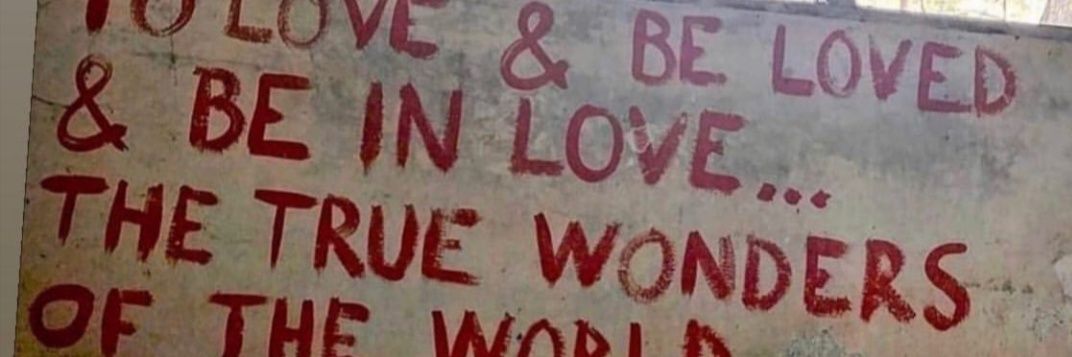 TO LOVE & BE LOVED
& BE IN LOVE...
THE TRUE WONDERS
OF THE WORLD